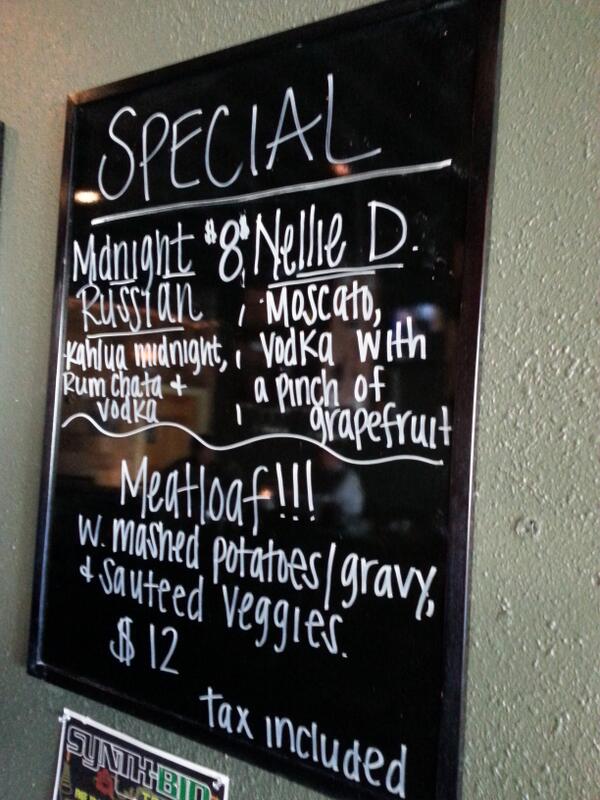 SPECIAL
Midnight $8 Nellie D.
Russian
Kahlua midnight,
Rum chata +
vodka
Moscato,
Vodka with
a pinch of
grapefruit
Meatloaf!!!
w. mashed potatoes/gravy,
& Sauteed Veggies.
$12
tax included
SYNTH-BIO